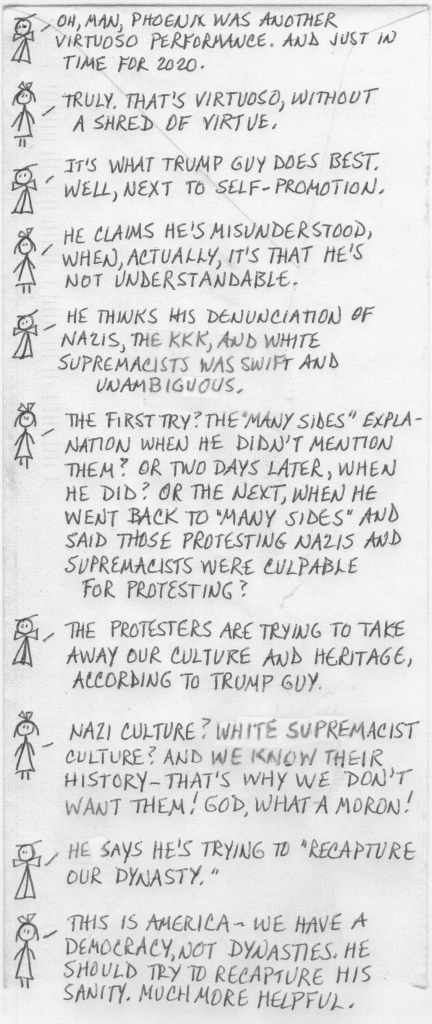 OH, MAN, PHOENIX WAS ANOTHER
VIRTUOSO PERFORMANCE. AND JUST IN
TIME FOR 2020.
TRULY. THAT'S VIRTUOSO, WITHOUT
A SHRED OF VIRTUE.
IT'S WHAT TRUMP GUY DOES BEST.
WELL, NEXT TO SELF-PROMOTION.
HE CLAIMS HE'S MISUNDERSTOOD,
WHEN, ACTUALLY, IT'S THAT HE'S
NOT UNDERSTANDABLE.
HE THINKS HIS DENUNCIATION OF
NAZIS, THE KKK, AND WHITE
SUPREMACISTS WAS SWIFT AND
UNAMBIGUOUS.
THE FIRST TRY? THE "MANY SIDES" EXPLA-
NATION WHEN HE DIDN'T MENTION
THEM? OR TWO DAYS LATER, WHEN
HE DID? OR THE NEXT, WHEN HE
WENT BACK TO "MANY SIDES" AND
SAID THOSE PROTESTING NAZIS AND
SUPREMACISTS WERE CULPABLE
FOR PROTESTING?
THE PROTESTERS ARE TRYING TO TAKE
AWAY OUR CULTURE AND HERITAGE,
ACCORDING TO TRUMP GUY.
NAZI CULTURE? WHITE SUPREMACIST
CULTURE? AND WE KNOW THEIR
HISTORY - THAT'S WHY WE DON'T
WANT THEM! GOD, WHAT A MORON!
HE SAYS HE'S TRYING TO "RECAPTURE
OUR DYNASTY."
THIS IS AMERICA - WE HAVE A
DEMOCRACY, NOT DYNASTIES. HE
SHOULD TRY TO RECAPTURE HIS
SANITY. MUCH MORE HELPFUL.